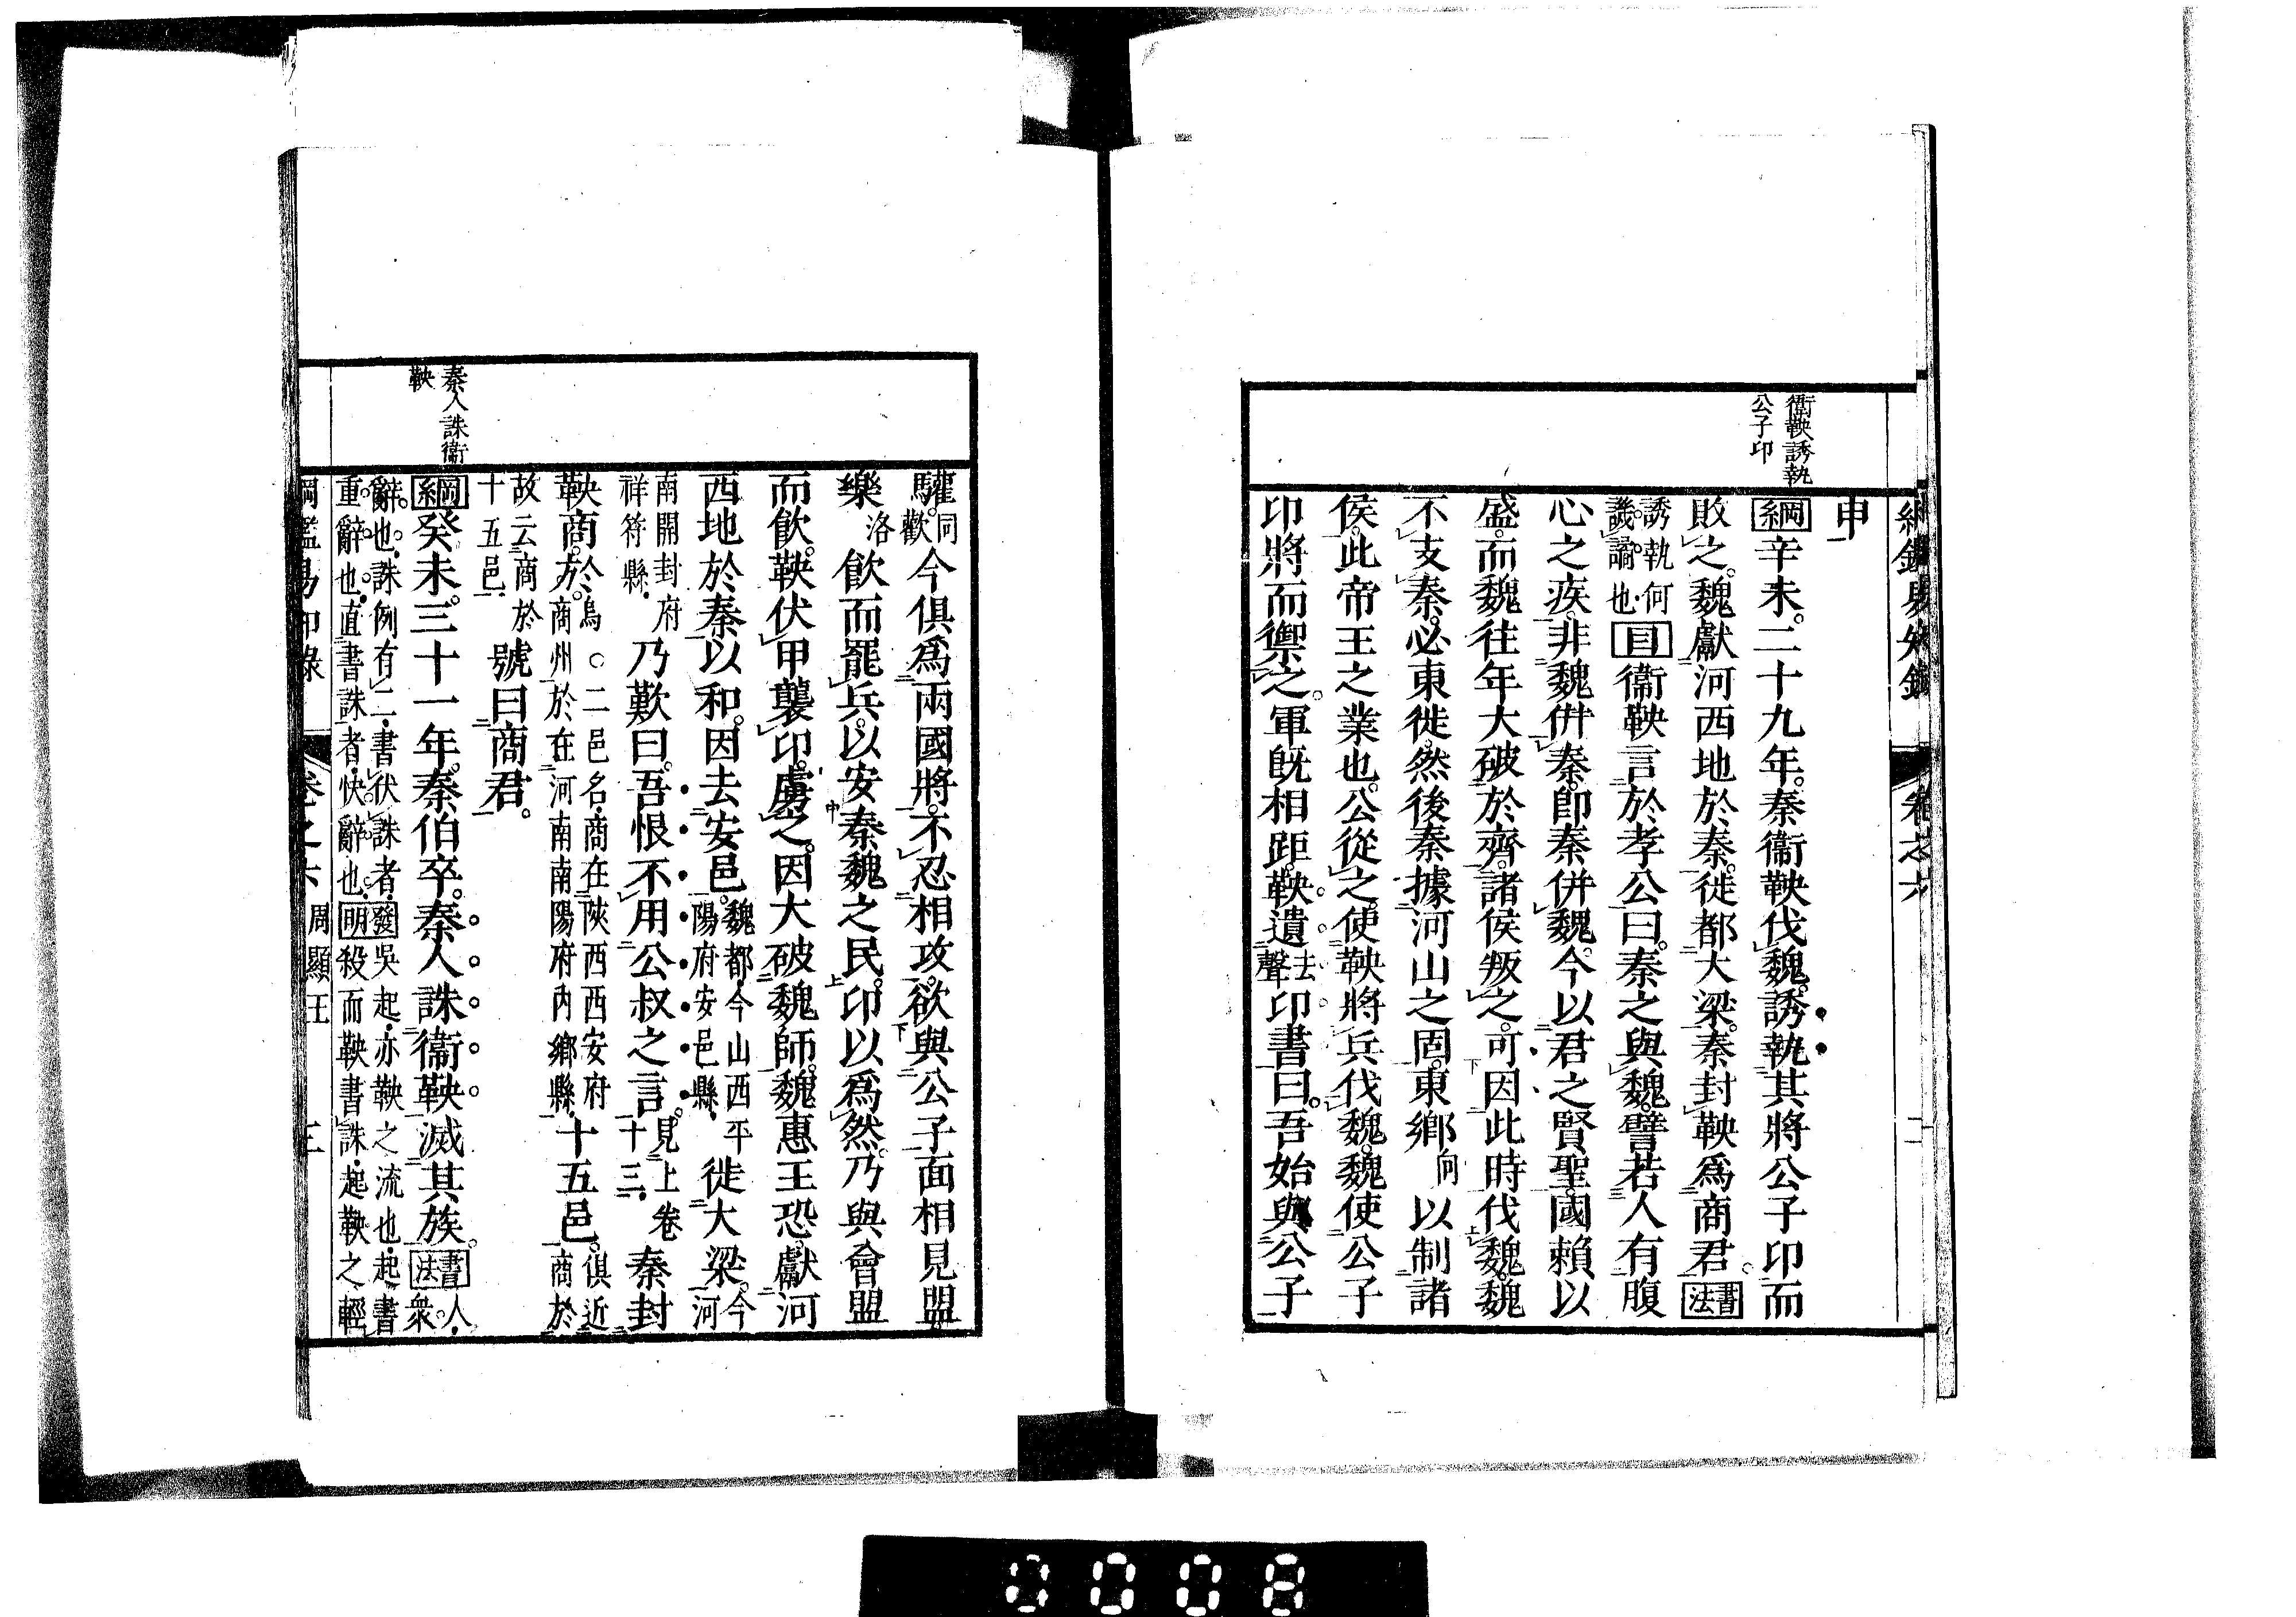 綱鑑易知錄 卷之六 二
衞鞅誘執
公子卬
申
綱辛未。二十九年。秦衞鞅伐魏。誘執其將公子卬而
敗之。魏獻河西地於秦。徙都大梁。秦封鞅爲商君。書法
誘執何
譏譎也。
目衞鞅言於孝公曰。秦之與魏。譬若人有腹
心之疾。非魏併秦。卽秦併魏。今以君之賢聖。國賴以
盛。而魏往年大破於齊。諸侯叛之。可因此時伐魏。魏
不支秦。必東徙。然後秦據河山之固。東鄉向以制諸
侯。此帝王之業也。公從之。使鞅將兵伐魏。魏使公子
卬將而禦之。軍既相距。鞅遺去聲卬書曰。吾始與公子
驩。同歡今俱爲兩國將。不忍相攻。欲與公子面相見盟。
樂洛飮而罷兵。以安秦魏之民。卬以爲然。乃與會盟
而飮。鞅伏甲襲卬。虜之。因大破魏師。魏惠王恐。獻河
西地於秦以和。因去安邑。魏都。今山西平陽府安邑縣。徙大梁。今河
南開封府祥符縣。乃歎曰。吾恨不用公叔之言。見上卷十三。秦封
鞅商於烏。〇二邑名。商在陝西西安府商州。於在河南南陽府內鄉縣。十五邑。俱近商於
故云商於十五邑。號曰商君。
秦人誅衞
鞅
綱癸未。三十一年。秦伯卒。秦人誅衞鞅。滅其族。書法人。衆
辭也。誅例有二。書伏誅者。
重辭也。直書誅者。快辭也。
發明吳起。亦鞅之流也。起書
殺而鞅書誅。起鞅之輕
綱鑑易知錄 卷之六 周顯王 三